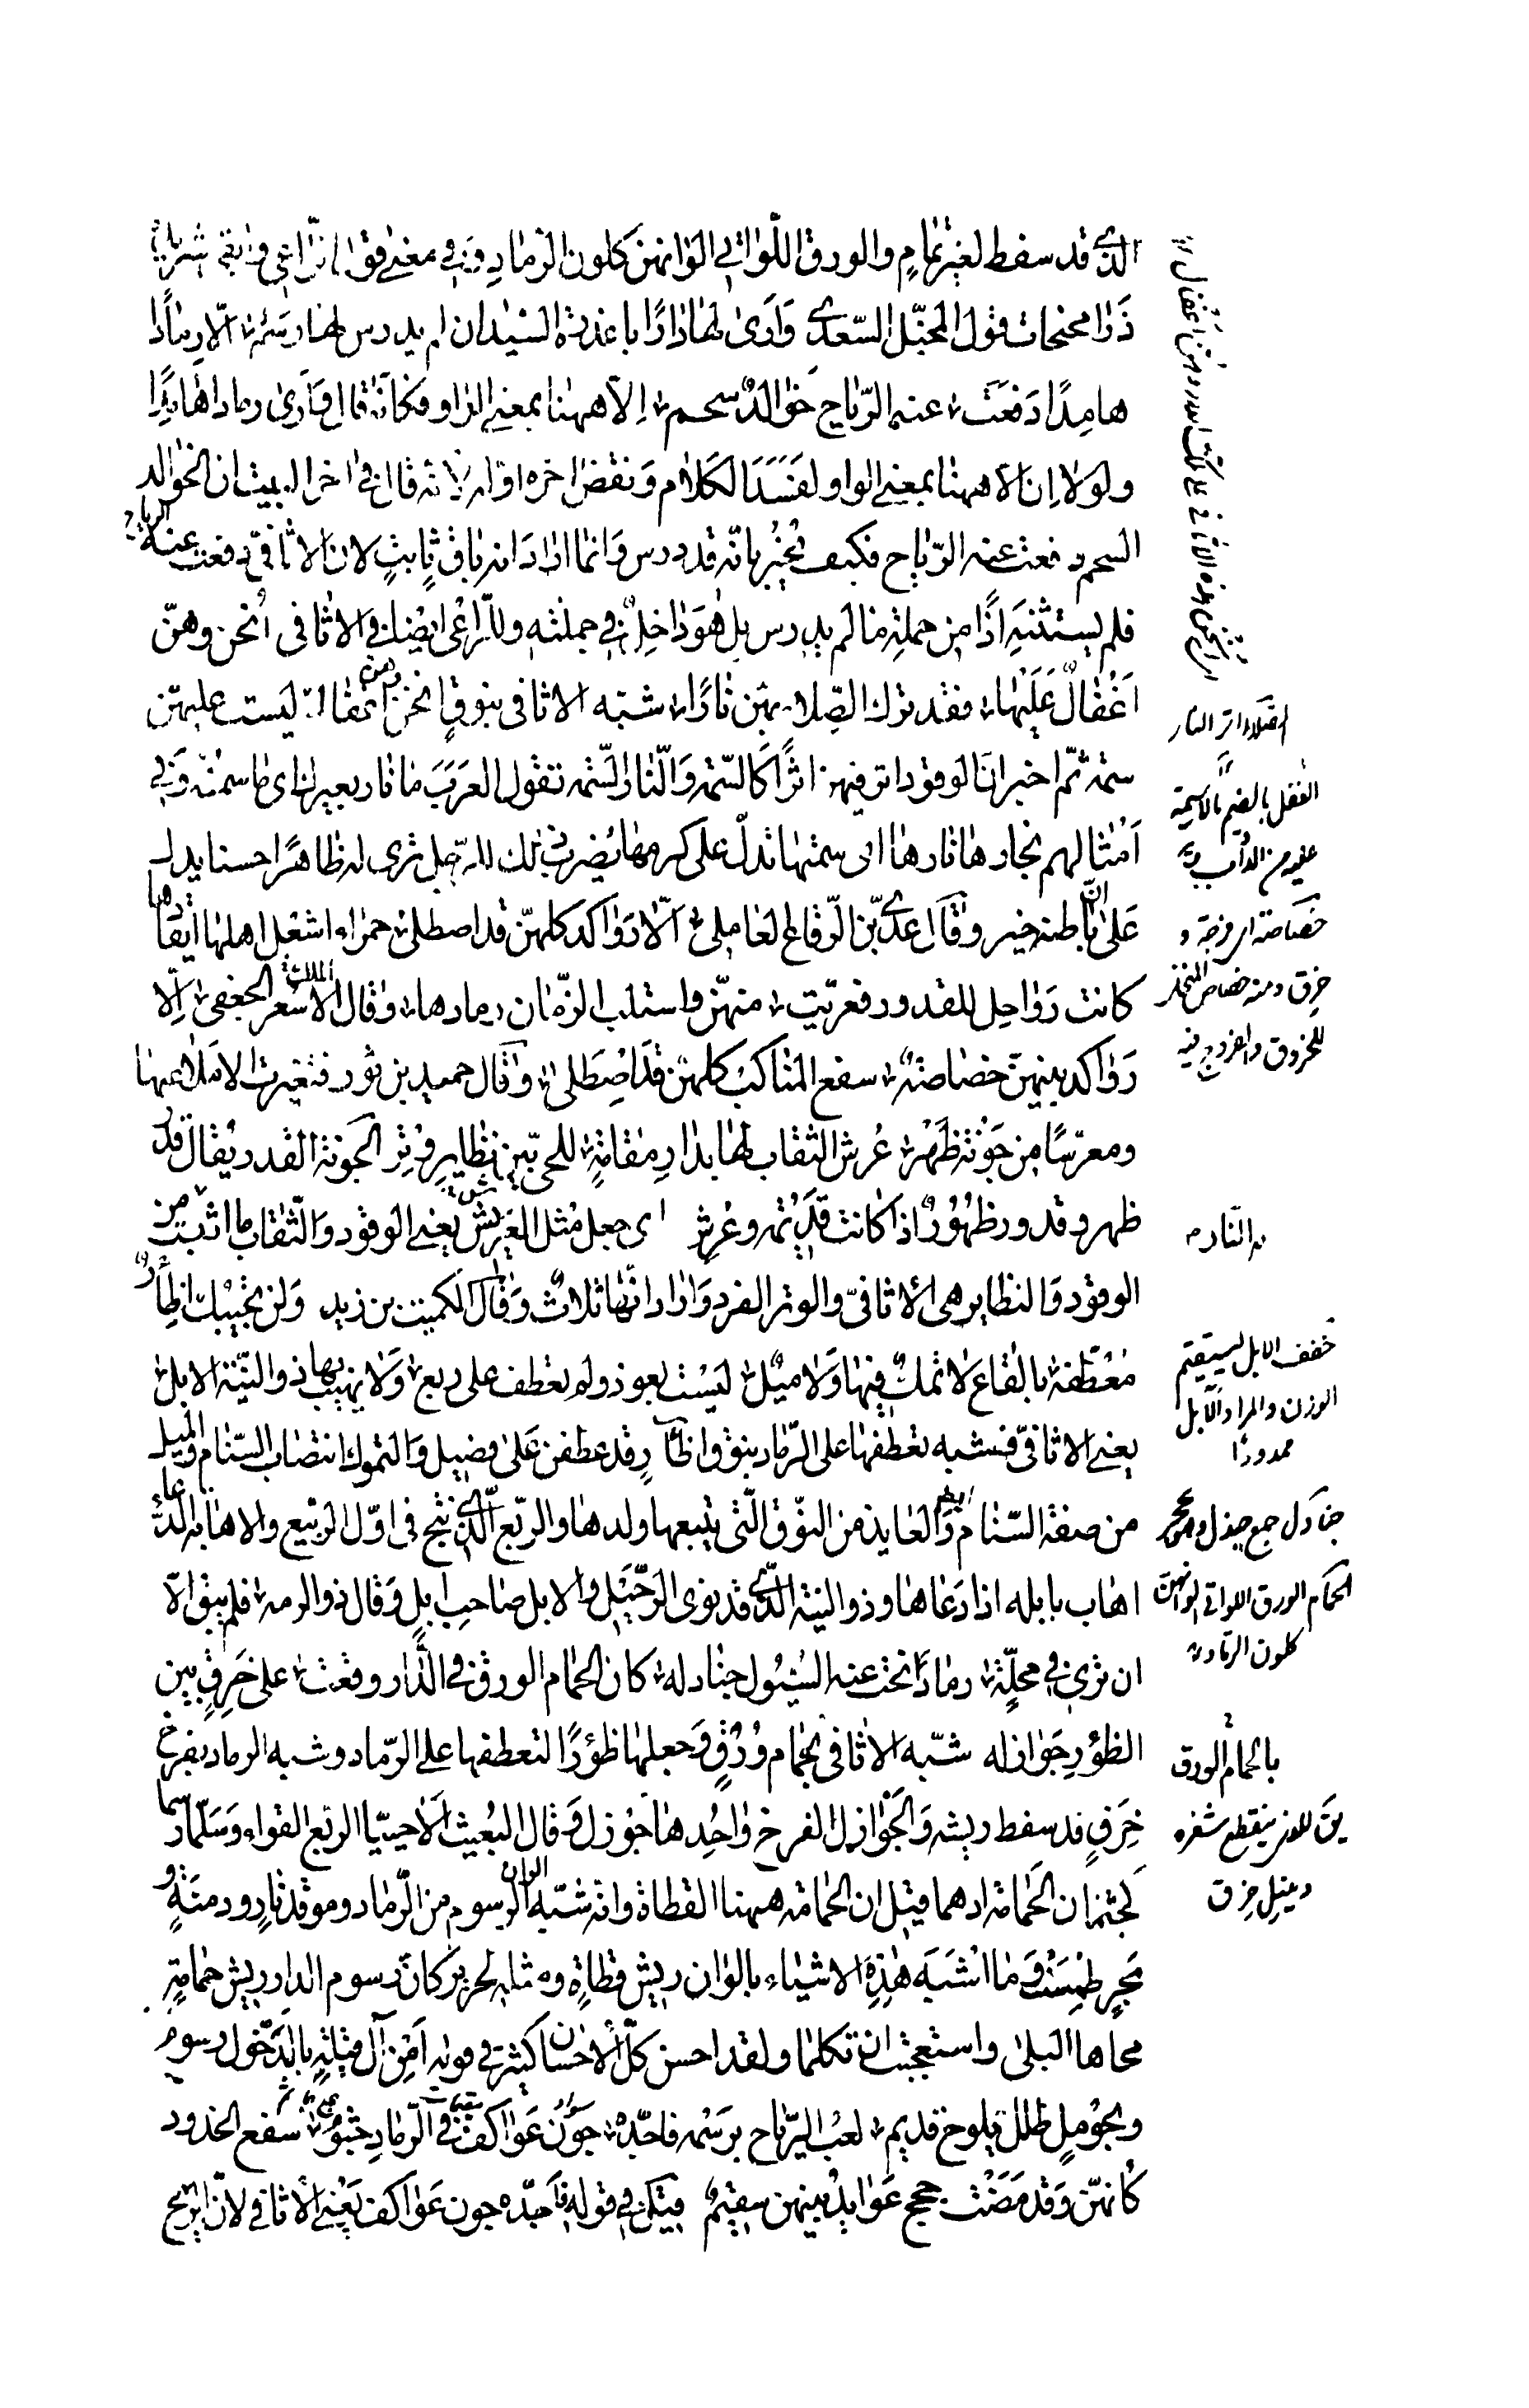 الذي قد سقط لغير تمام والورق اللواتي الوانهن كلون الرماد وفي معنى قول الراعي
ذرا محنجات قول المخبل السعدي وارى لها دارا باغدرة السيدان لم يدرس لها رسم الا رمادا
هامدا دفعت عنه الرياح خوالد سحم الا ههنا بمعنى الواو فكانه قال وارى رمادا هامدا
ولولا ان الا ههنا بمعنى الواو لفسد الكلام ونقض اخره اوله لانه قال في اخر البيت ان الخوالد
السحم دفعت عنه الرياح فكيف يخبر بانه قد درس وانما اراد انه باق ثابت لان الاثافي دفعت عنه الرياح
فلم يستثنه اذا من جملة ما لم يدرس بل هو داخل في جملته وللراعي ايضا في الاثافي انخن وهن
اغفال عليها فقد ترك الصلاء بهن نارا شبه الاثافي بنوق انخن وهن اغفال ليست عليهن
سمة ثم اخبر ان الوقود اثر فيهن اثرا كالسمة والنار السمة تقول العرب ما نار بعيرك اي ما سمته وفي
امثالهم نجارها نارها اي سمتها تدل على كرمها يضرب ذلك للرجل ترى له ظاهرا حسنا يدل
على ان باطنه خير وقال عدي بن الرقاع العاملي الا رواكد كلهن قد اصطلى حمراء اشعل اهلها ايقادها
كانت رواحل للقدور فعريت منهن واستلب الزمان رمادها وقال الاسعر الجعفي الا
رواكد بينهن خصاصة سفع المناكب كلهن قد اصطلى وقال حميد بن ثور فتغيرت الا ملاعبها
ومعرسا من جونة ظهر عرش الثقاب لها بدار مقامة للحي بين نظاير وتر الجونة القدر يقال قدر
ظهر وقدور ظهور اذا كانت قديمة وعرش اي جعل مثل العريش يعني الوقود والثقاب ما اثقبت من
الوقود والنظاير هي الاثافي والوتر الفرد واراد انها ثلاث وقال الكميت بن زيد ولن تجيبك اظآر
معطفة بالقاع لا تمك فيها ولا ميل ليست بعوذ ولم تعطف على ربع ولا يهيب بها ذو النية الابل
يعني الاثافي فشبه تعطفها على الرماد بنوق اظآر قد عطفن على فصيل والتموك انتصاب السنام والميل
من صفة السنام ايضا والعايذ من النوق التي يتبعها ولدها والربع الذي نتج في اول الربيع والاهابة الدعاء
اهاب بابله اذا دعاها وذو النية الذي قد نوى الرحيل والابل صاحب ابل وقال ذو الرمة فلم يبق الا
ان ترى في محلة رمادا نحت عنه السيول جنادله كان الحمام الورق في الدار وقعت على خرق بين
الظؤر جوازله شبه الاثافي بحمام ورق وجعلها ظؤرا لتعطفها على الرماد وشبه الرماد بفرخ
خرق قد سقط ريشه والجوازل الفرخ واحدها جوزل وقال البعيث الا حييا الربع القواء وسلما رسما
كجثمان الحمامة ادهما قيل ان الحمامة ههنا القطاة وانه شبه الوان الرسوم من الرماد وموقد نار ودمنة و
مجر طمست وما اشبه هذه الاشياء بالوان ريش قطاة ومثله لجرير كان رسوم الدار ريش حمامة
محاها البلى واستعجمت ان تكلما ولقد احسن كل الاحسان كثير في قوله امن آل قيلة بالدخول رسوم
وبحومل طلل يلوح قديم لعب الرياح برسمه فاجده جون عواكف في الرماد جثوم سفع الخدود
كانهن وقد مضت حجج عوايد بينهن سقيم فيتكن في قوله فاجده جون عواكف يعني الاثافي لان الريح
الصلاء اثر النار
الغفل بالضم ما لا سمة
عليه من الدواب
خصاصة اي فرجة و
خرق ومنه خصاص المنخل
للخروق والفروج فيه
به النار
خفف الابل ليستقيم
الوزن والمراد الآبل
ممدودا
جنادل جمع جندل وهو حجر
الحمام الورق اللواتي الوانهن
كلون الرماد
بالحمام الورق